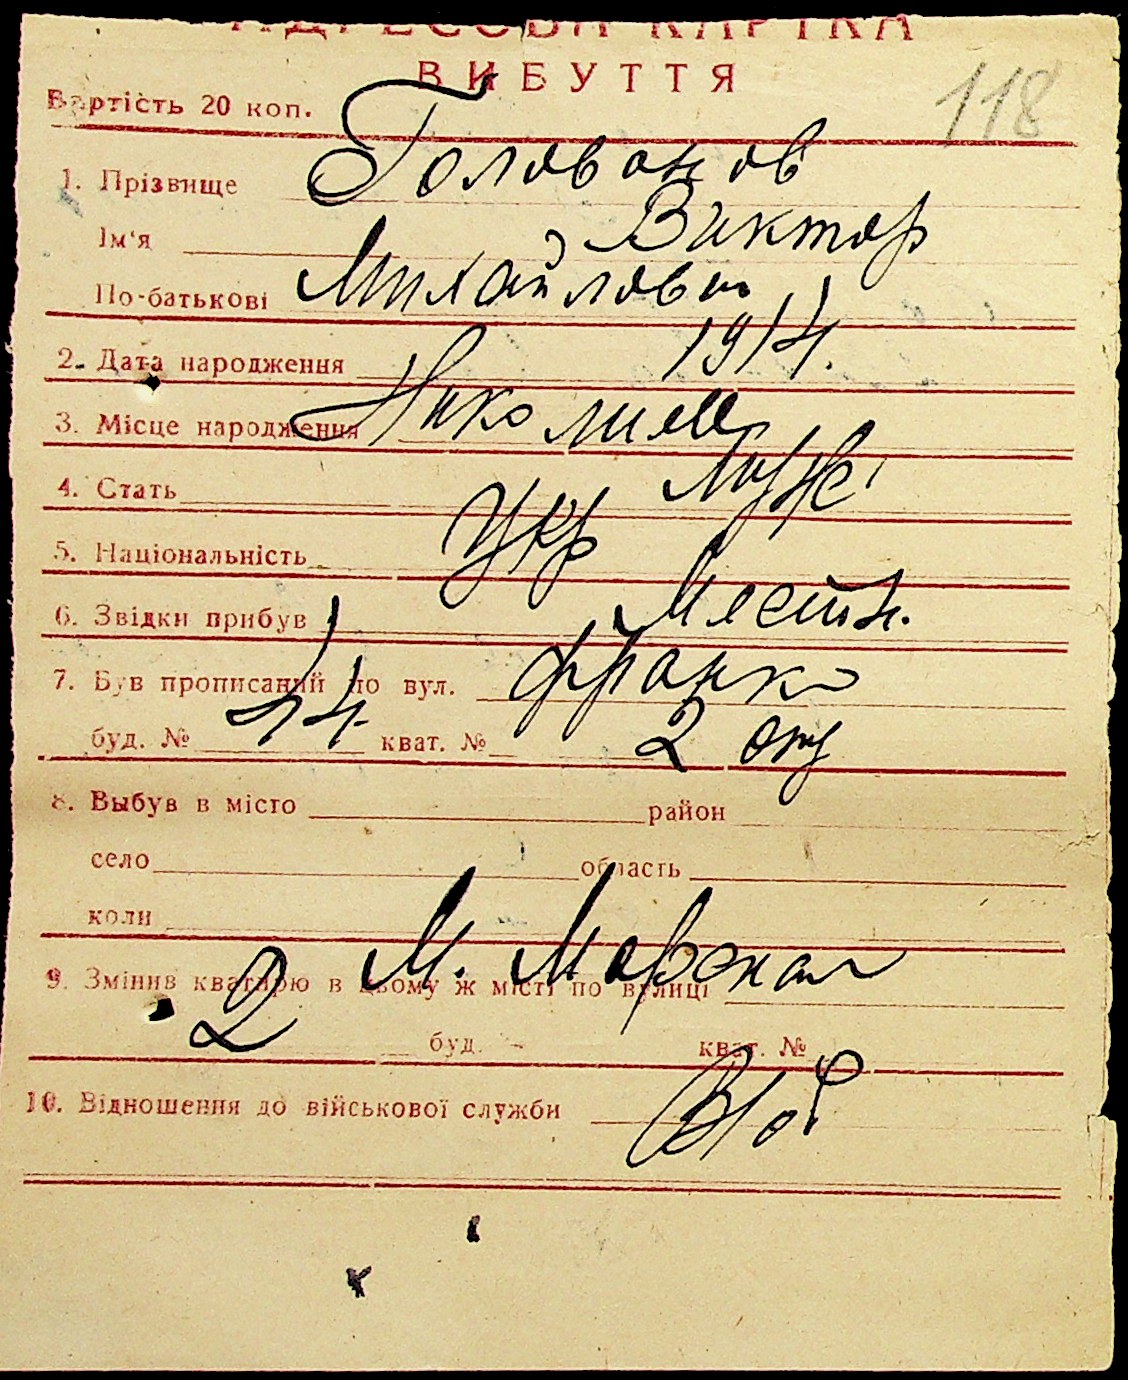 АДРЕСОВА КАРТКА
ВИБУТТЯ
118
Вартість 20 коп.
1. Прізвище Голованов
Ім'я Виктор
По-батькові Михайлович
2. Дата народження 1914.
3. Місце народження Николаев
4. Стать Муж
5. Національність Укр
6. Звідки прибув Местн.
7. Був прописаний по вул. Франко
буд. № 44 кват. № 2
8. Выбув в місто район
село область
коли
9. Змінив квартирю в цьому ж місті по вулиці М. Морская
2 буд. кват. №
10. Відношення до військової служби В/об